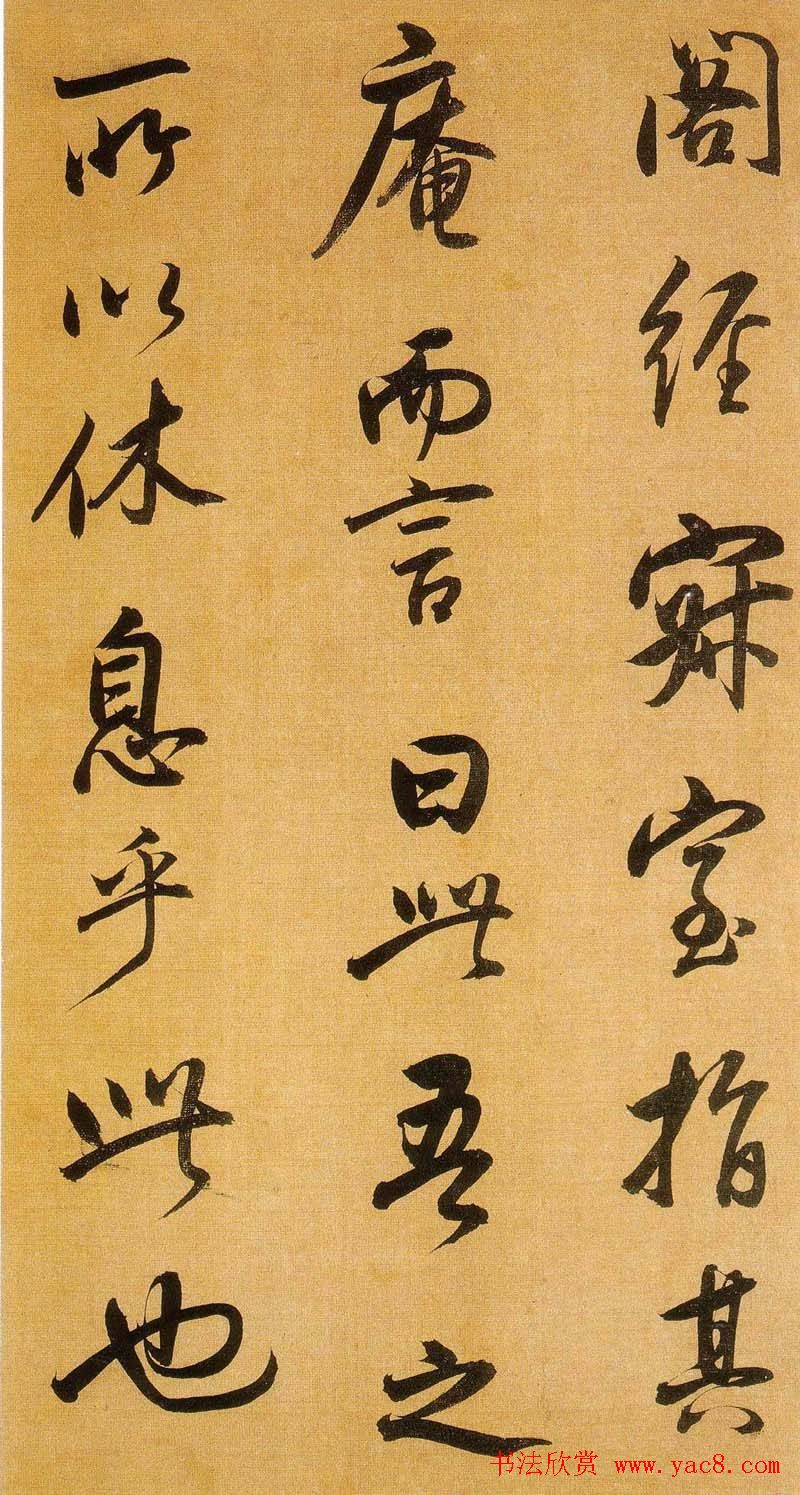 阁经寂室指其
庵而言曰此吾之
所以休息乎此也
书法欣赏 www.yac8.com